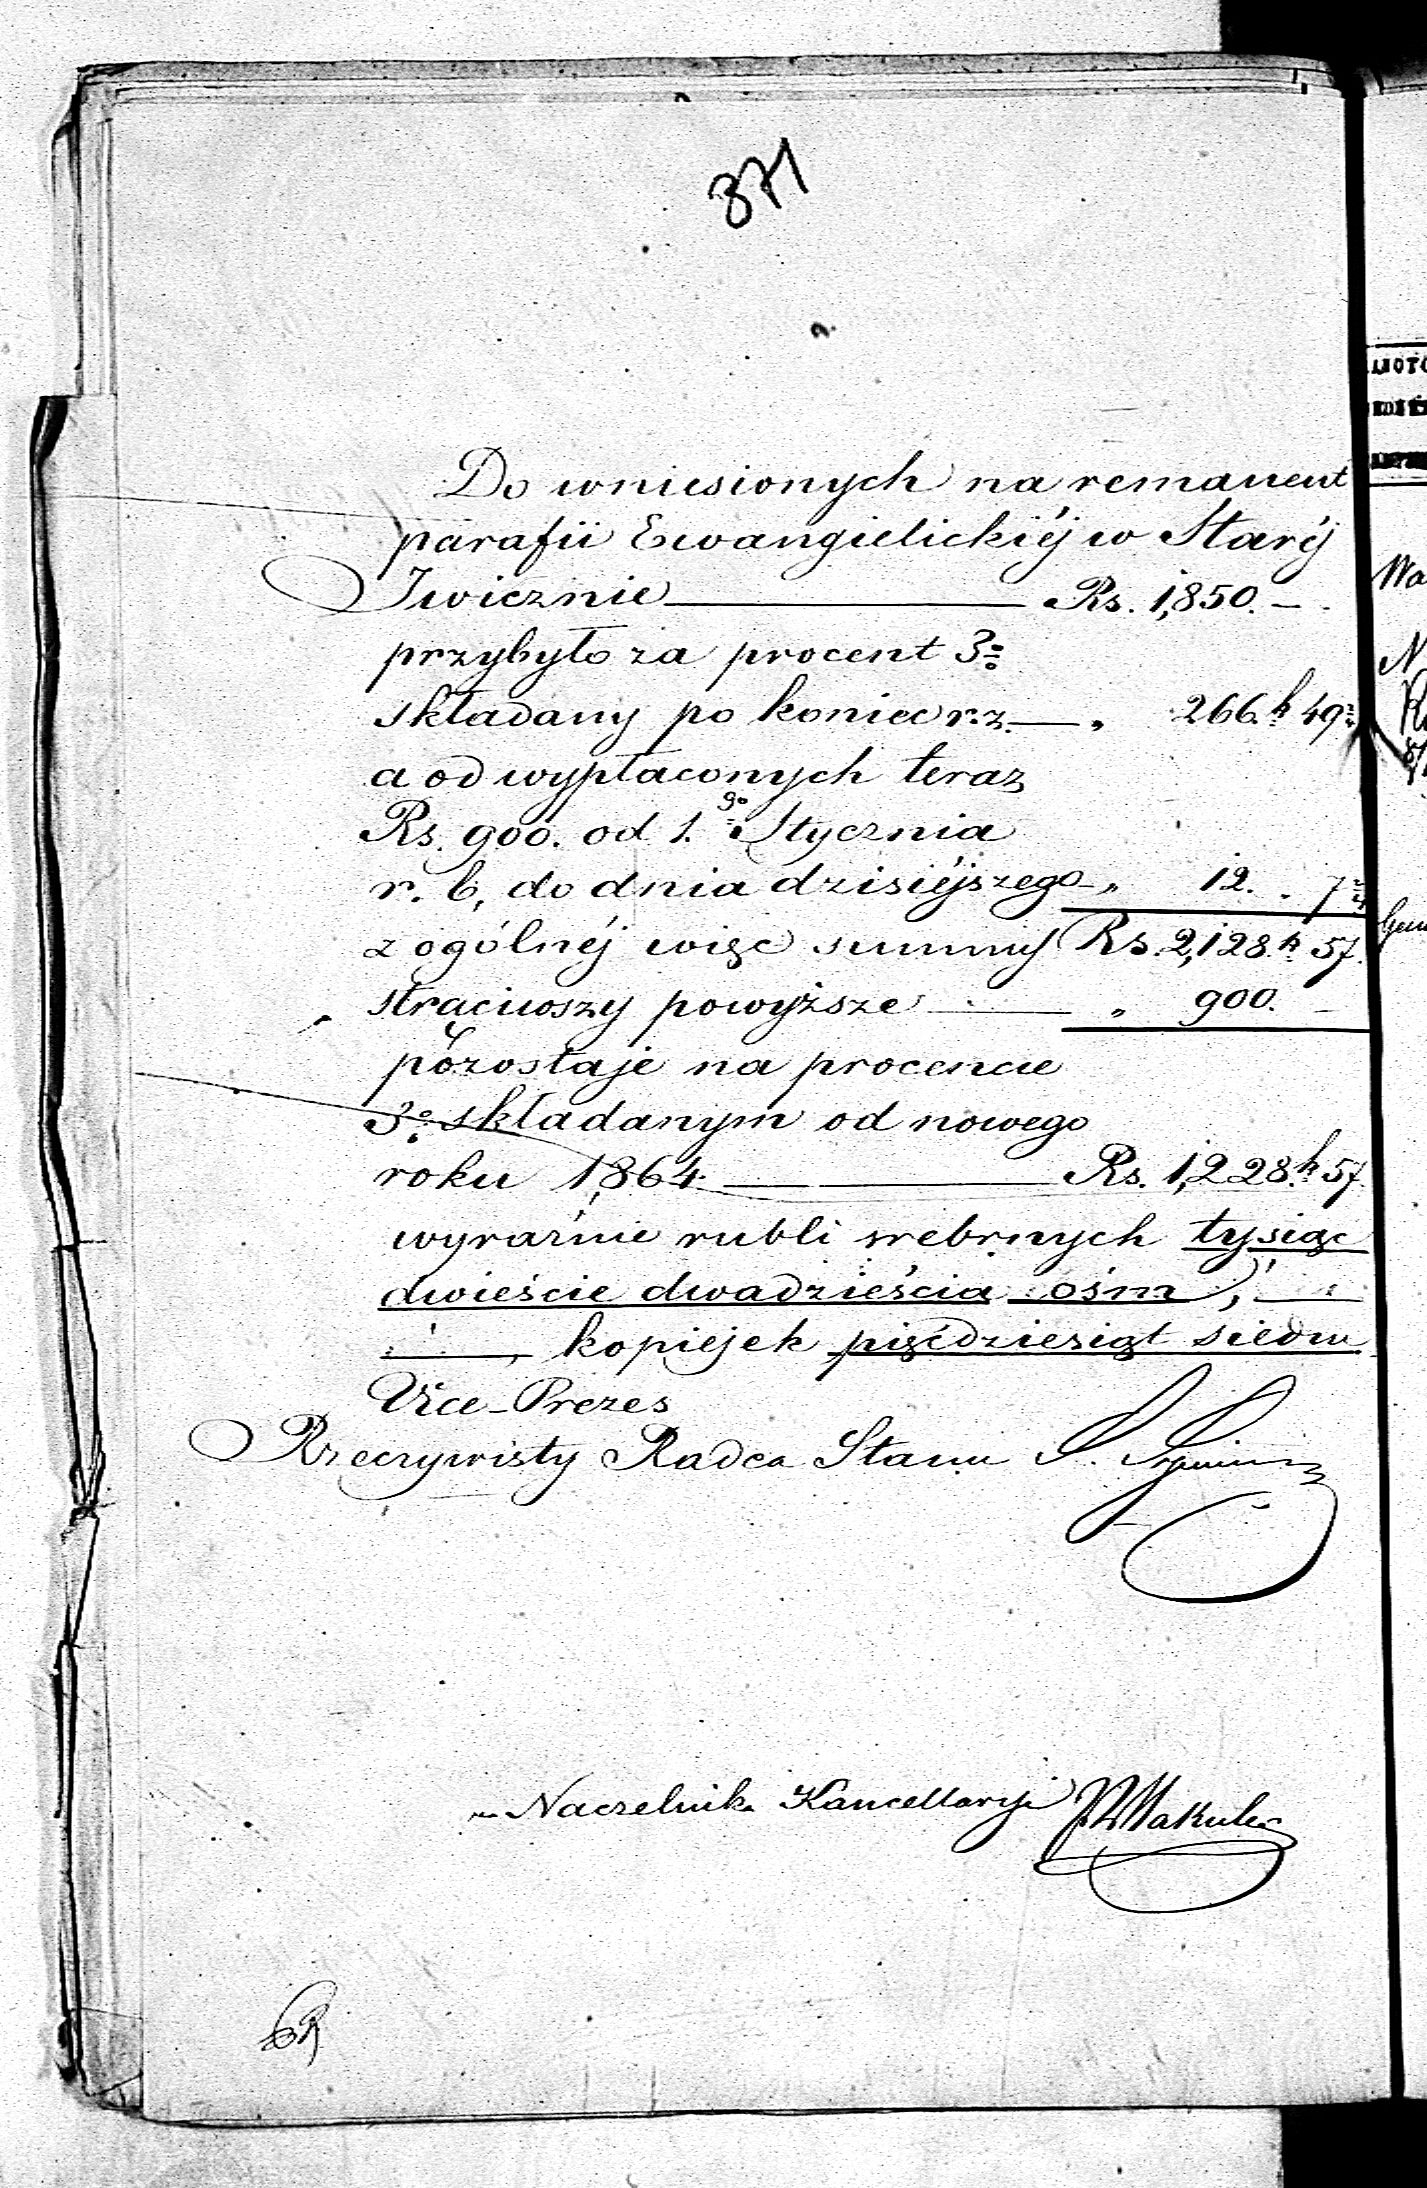 371
Do wniesionych na remanent
parafii Ewangielickiéj w Staréj
Iwicznie Rs. 1,850. —
przybyło za procent 3%
składany po koniec r. z. — „ 266. k 49 2/4
a od wypłaconych teraz
Rs. 900. od 1.go Stycznia
r. b, do dnia dzisiéjszego „ 12. „ 7 2/4
z ogólnéj więc summy Rs. 2,128. k 57.
straciwszy powyższe — „ 900. —
pozostaje na procencie
3% składanym od nowego
roku 1864 — Rs. 1,228. k 57.
wyraźnie rubli srebrnych tysiąc
dwieście dwadzieścia ośm, —
—, kopiejek pięćdziesiąt siedm
Vice-Prezes
Rzeczywisty Radca Stanu
Naczelnik Kancellaryi